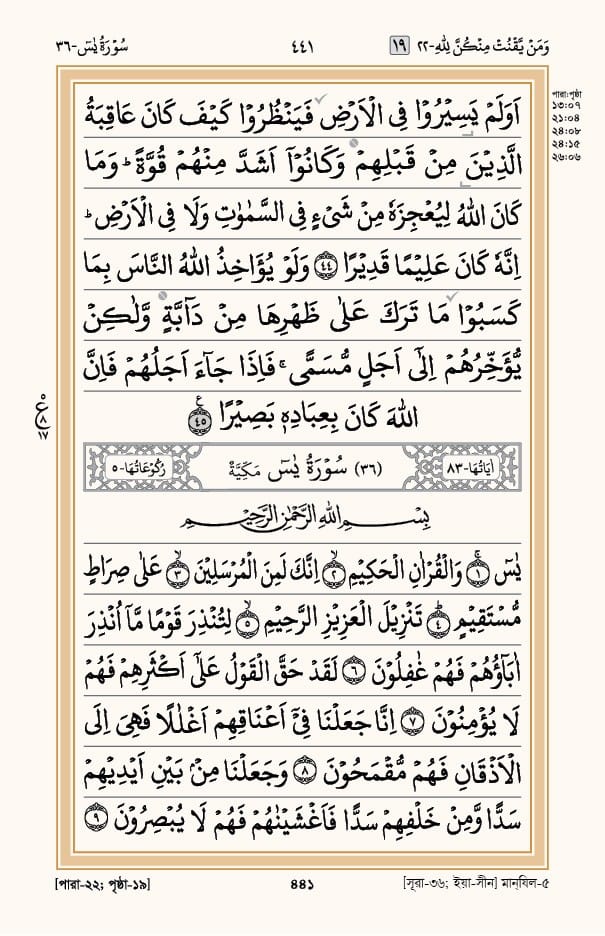 وَمَنْ يَّقْنُتْ مِنْكُنَّ لِلّٰهِ-٢٢ ١٩ ٤٤١ سُوْرَةُ يٰسٓ-٣٦
পারা:পৃষ্ঠা
১৩:০৭
২১:০৪
২৪:০৮
২৪:১৫
২৬:০৬
اَوَلَمْ يَسِيْرُوْا فِى الْاَرْضِ فَيَنْظُرُوْا كَيْفَ كَانَ عَاقِبَةُ
الَّذِيْنَ مِنْ قَبْلِهِمْ وَكَانُوْٓا اَشَدَّ مِنْهُمْ قُوَّةً ؕ وَمَا
كَانَ اللّٰهُ لِيُعْجِزَهٗ مِنْ شَىْءٍ فِى السَّمٰوٰتِ وَلَا فِى الْاَرْضِ ؕ
اِنَّهٗ كَانَ عَلِيْمًا قَدِيْرًا ﴿٤٤﴾ وَلَوْ يُؤَاخِذُ اللّٰهُ النَّاسَ بِمَا
كَسَبُوْا مَا تَرَكَ عَلٰى ظَهْرِهَا مِنْ دَآبَّةٍ وَّلٰكِنْ
يُّؤَخِّرُهُمْ اِلٰٓى اَجَلٍ مُّسَمًّى ۚ فَاِذَا جَآءَ اَجَلُهُمْ فَاِنَّ
اللّٰهَ كَانَ بِعِبَادِهٖ بَصِيْرًا ﴿٤٥﴾ ع
ع
٨
١٧
اٰيَاتُهَا-٨٣ (٣٦) سُوْرَةُ يٰسٓ مَكِّيَّةٌ رُكُوْعَاتُهَا-٥
بِسْمِ اللّٰهِ الرَّحْمٰنِ الرَّحِيْمِ
يٰسٓ ﴿١﴾ۚ وَالْقُرْاٰنِ الْحَكِيْمِ ﴿٢﴾ۙ اِنَّكَ لَمِنَ الْمُرْسَلِيْنَ ﴿٣﴾ۙ عَلٰى صِرَاطٍ
مُّسْتَقِيْمٍ ﴿٤﴾ؕ تَنْزِيْلَ الْعَزِيْزِ الرَّحِيْمِ ﴿٥﴾ۙ لِتُنْذِرَ قَوْمًا مَّآ اُنْذِرَ
اٰبَآؤُهُمْ فَهُمْ غٰفِلُوْنَ ﴿٦﴾ لَقَدْ حَقَّ الْقَوْلُ عَلٰٓى اَكْثَرِهِمْ فَهُمْ
لَا يُؤْمِنُوْنَ ﴿٧﴾ اِنَّا جَعَلْنَا فِىْٓ اَعْنَاقِهِمْ اَغْلٰلًا فَهِىَ اِلَى
الْاَذْقَانِ فَهُمْ مُّقْمَحُوْنَ ﴿٨﴾ وَجَعَلْنَا مِنْۢ بَيْنِ اَيْدِيْهِمْ
سَدًّا وَّمِنْ خَلْفِهِمْ سَدًّا فَاَغْشَيْنٰهُمْ فَهُمْ لَا يُبْصِرُوْنَ ﴿٩﴾
[পারা-২২; পৃষ্ঠা-১৯] ٤٤١ [সূরা-৩৬; ইয়া-সীন] মান্‌যিল-৫